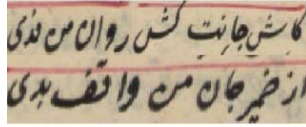 کاش جانت کش روان من فدی
از ضمیر جان من واقف بدی